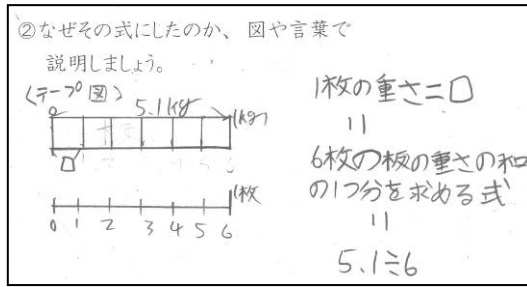 ②なぜその式にしたのか、図や言葉で
説明しましょう。
〈テープ図〉
0 5.1kg (kg)
□
(枚
0 1 2 3 4 5 6
1枚の重さ=□
=
6枚の板の重さの和
の1つ分を求める式
=
5.1÷6